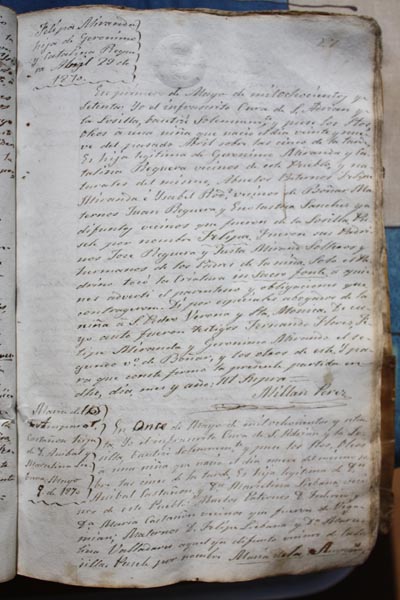 Felipa Miranda
hija de Geronimo
y Catalina Reque
ra Abril 29 de
1870.
En primero de Mayo de mil ochocientos y
setenta Yo el infrascrito Cura de S. Adrian
la Losilla, bauticé Solemnemte y puse los Stos
Oleos a una niña que nació el dia veinte y nue
ve del pasado Abril sobre las cinco de la tarde
Es hija legitima de Geronimo Miranda y Ca
talina Requera vecinos de este Pueblo, y na
turales del mismo, Abuelos Paternos Felipe
Miranda e Isabel vecinos de Boñar Ma
ternos Juan Requera y Sanchez ya
difuntos vecinos que fueron de la Losilla. Pu
sele por nombre Felipa. Fueron sus Padri
nos Jose Requera y Justa Miranda Solteros y
hermanos de los Padres de la niña. Solo el Pa
drino tocó la criatura en Sacro fonte, a quie
nes advertí el parentesco y obligaciones que
contrageron. Di por especiales abogados de la
niña a S. Pedro Verona y Sta Monica. De cu
yo acto fueron testigos Fernando Florez, Fe
lipe Miranda y Geronimo Miranda el se
gundo vo de Boñar, y los otros de este. Y pa
ra que conste firmo la presente partida en
dho, dia, mes y año. Ut supra.
Millan Perez
Maria de la
Asuncion
Castañon hija
de D. Anibal y
Marcelina La
Mayo
9 de 1870
En once de Mayo de mil ochocientos y seten
ta Yo el infrascrito Cura de S. Adrian y la Lo
silla bauticé Solemnem. y puse los Stos Oleos
a una niña que nació el dia del mismo so
bre las cinco de la tarde. Es hija legitima de Dn
Anibal Castañon y Da Marcelina veci
nos de este Pueblo. Abuelos Paternos D.
Da Maria Castañon vecinos que fueron de Vega
mian, Maternos D. Felipe y Da Marce
lina Valladares aquel ya difunto vecinos de la Lo
silla. Pusele por nombre Maria de la Asun